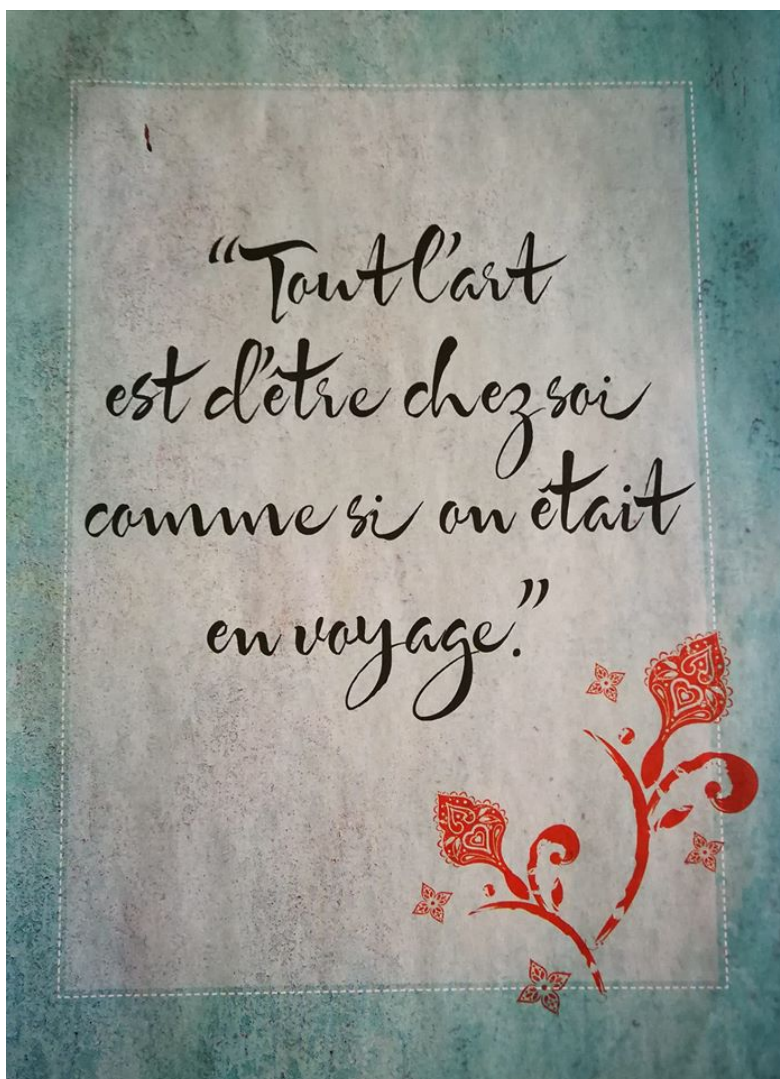 “Tout l’art
est d’être chez soi
comme si on était
en voyage.”